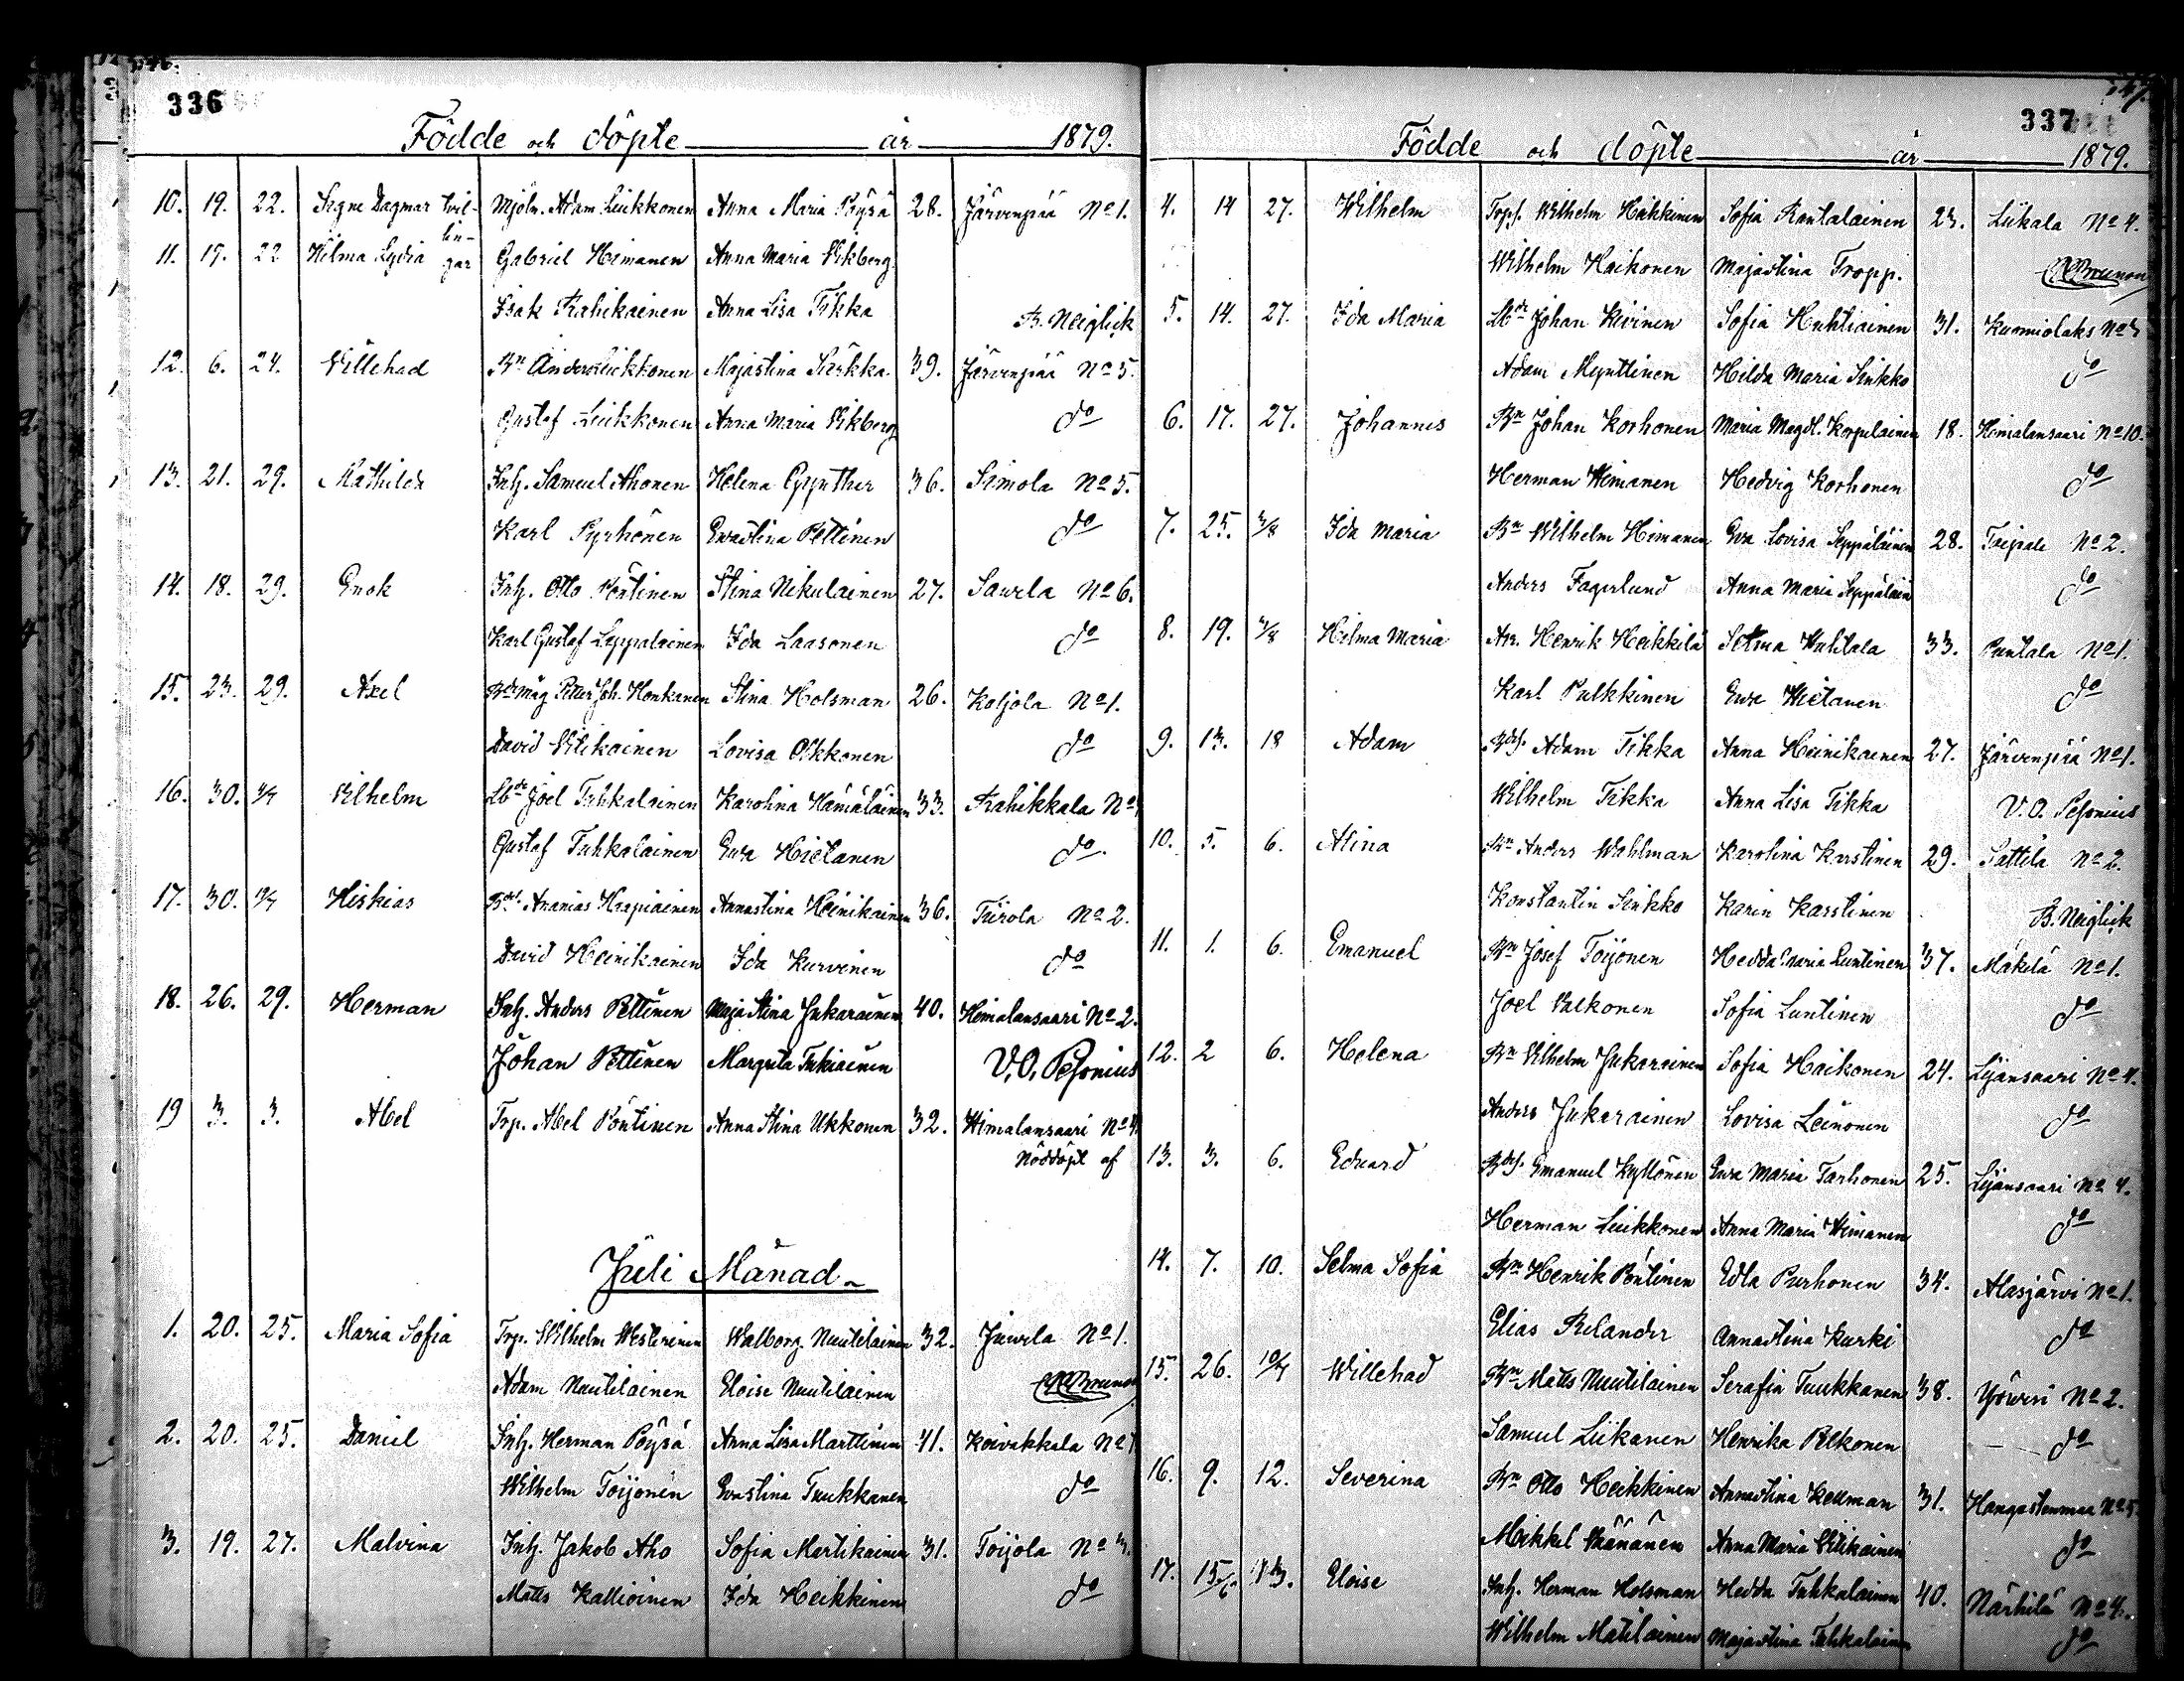 336
Födde och döpte år 1879.
10. 19. 22. Signe Dagmar tvil- Mjöln. Adam Liukkonen Anna Maria Pöysä 28. Järvenpää No 1.
lin-
11. 19. 22 Hilma Lydia gar Gabriel Heimanen Anna Maria Vikberg
Isak Rahikainen Anna Lisa Tikka B. Neiglick
12. 6. 24. Villehad Bn Anders Liukkonen Majastina Kärkkä 39. Järvenpää No 5.
Gustaf Liukkonen Anna Maria Vikberg do
13. 21. 29. Mathilda Inh. Samuel Ahonen Helena Gynther 36. Simola No 5.
Karl Pyrhönen Evastina Pettinen do
14. 18. 29. Enok Inh. Otto Pöntinen Stina Nikulainen 27. Saurla No 6.
Karl Gustaf Leppalainen Ida Laasonen do
15. 23. 29. Axel Bdemåg Petter Joh. Honkanen Stina Holsman 26. Koljola No 1.
David Vilikainen Lovisa Okkonen do
16. 30. 4/7 Vilhelm Lbde Joel Tuhkalainen Karolina Hämäläinen 33. Rahikkala No
Gustaf Tuhkalainen Eva Hietanen do
17. 30. Hiskias Bdes. Ananias Haapiainen Annastina Heinikainen 36. Tiirola No 2.
David Heinikainen Ida Kurvinen do
18. 26. 29. Herman Inh. Anders Pettinen Maja Stina Jukarainen 40. Heimalansaari No 2.
Johan Pettinen Margreta Tukiainen V. O. Pesonius
19 3. 3. Abel Trp. Abel Pöntinen Anna Stina Ukkonen 32. Himalansaari No 4.
Nöddöpt af
Juli Månad
1. 20. 25. Maria Sofia Trp. Wilhelm Westerinen Walborg Nuutilainen 32. Juurla No 1.
Adam Nuutilainen Eloise Nuutilainen
2. 20. 25. Daniel Inh. Herman Pöysä Anna Lisa Marttinen 41. Koivakkala No
Wilhelm Toijonen Evastina Tuukkanen do
3. 19. 27. Malvina Inh. Jakob Aho Sofia Martikainen 31. Toijola No 3.
Matts Kallioinen Ida Heikkinen do
337
Födde och döpte år 1879.
4. 14 27. Wilhelm Torp. Wilhelm Häkkinen Sofia Rantalainen 23. Liikala No 4.
Wilhelm Haikonen Majastina Tropp.
5. 14. 27. Ida Maria Lbde Johan Kivinen Sofia Huhtiainen 31. Kunniolaks No 3
Adam Mynttinen Hilda Maria Sinkko do
6. 17. 27. Johannes Bn Johan Korhonen Maria Magdl. Korpelainen 18. Heimalansaari No 10.
Herman Heimanen Hedvig Korhonen do
7. 25. 3/8 Ida Maria Bn Wilhelm Himanen Eva Lovisa Seppäläinen 28. Taipale No 2.
Anders Fagerlund Anna Maria Seppäläin do
8. 19. 3/8 Hilma Maria Arr. Henrik Heikkilä Selma Huhtala 33. Puntala No 1.
Karl Pulkkinen Eva Hietanen do
9. 13. 18 Adam Bdes. Adam Tikka Anna Heinikainen 27. Järvenpää No 1.
Wilhelm Tikka Anna Lisa Tikka V. O. Pesonius
10. 5. 6. Alina Bn Anders Wahlman Karolina Karstinen 29. Sattila No 2.
Konstantin Sinkko Karin Karstinen B. Neiglick
11. 1. 6. Emanuel Bn Josef Toijonen Hedda Maria Luntinen 37. Mäkelä No 1.
Joel Valkonen Sofia Luntinen do
12. 2 6. Helena Bn Vilhelm Jukarainen Sofia Haikonen 24. Lijansaari No 4.
Anders Jukarainen Lovisa Leinonen do
13. 3. 6. Edvard Bdes. Emanuel Kyllönen Eva Maria Tarhonen 25. Lijansaari No 4.
Herman Liukkonen Anna Maria Himanen do
14. 7. 10. Selma Sofia Bn Henrik Pöntinen Edla Purhonen 34. Alasjärvi No 1.
Elias Relander Annastina Kurki do
15. 26. 10/7 Willehad Bn Matts Nuutilainen Serafia Tuukkanen 38. Yövesi No 2.
Samuel Liikanen Henrika Pelkonen do
16. 9. 12. Severina Bn Otto Heikkinen Annastina Kellman 31. Hangastenmaa No 5.
Mikkel Väänänen Anna Maria Vilikainen do
17. 15/6 13. Eloise Inh. Herman Holsman Hedda Tuhkalainen 40. Närhilä No 4.
Wilhelm Matilainen Majastina Tuhkalainen do